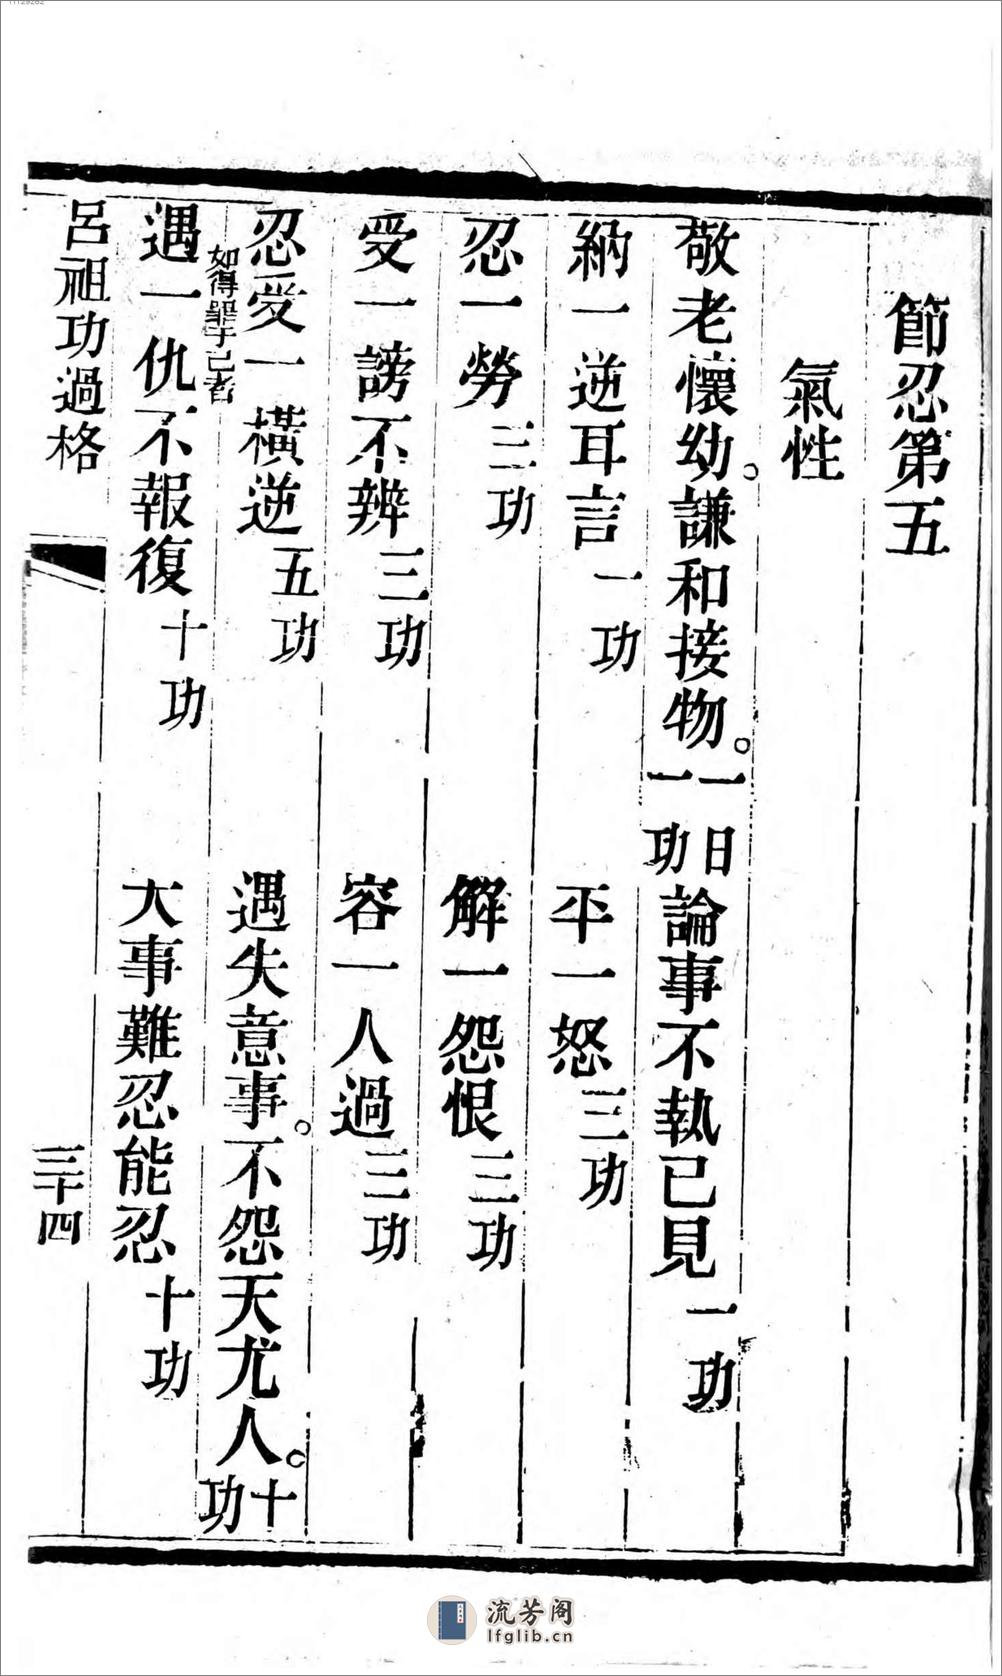 11129262
節忍第五
氣性
敬老懷幼。謙和接物。一日一功 論事不執已見 一功
納一逆耳言 一功 平一怒 三功
忍一勞 三功 解一怨恨 三功
受一謗不辨 三功 容一人過 三功
忍受一橫逆 五功 遇失意事。不怨天尤人。十功
如得罪于己者
遇一仇不報復 十功 大事難忍能忍 十功
呂祖功過格 三十四
流芳阁
lfglib.cn